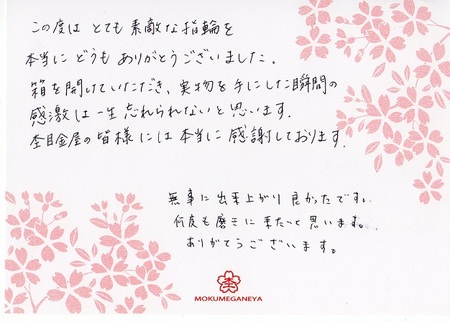 この度は とても 素敵な指輪を
本当に どうも ありがとうございました.
箱を開けていただき、実物を手にした瞬間の
感激は一生忘れられないと思います.
杢目金屋の皆様には本当に感謝しております.
無事に出来上がり良かったです。
何度も磨きに来たいと思います。
ありがとうございます。
MOKUMEGANEYA